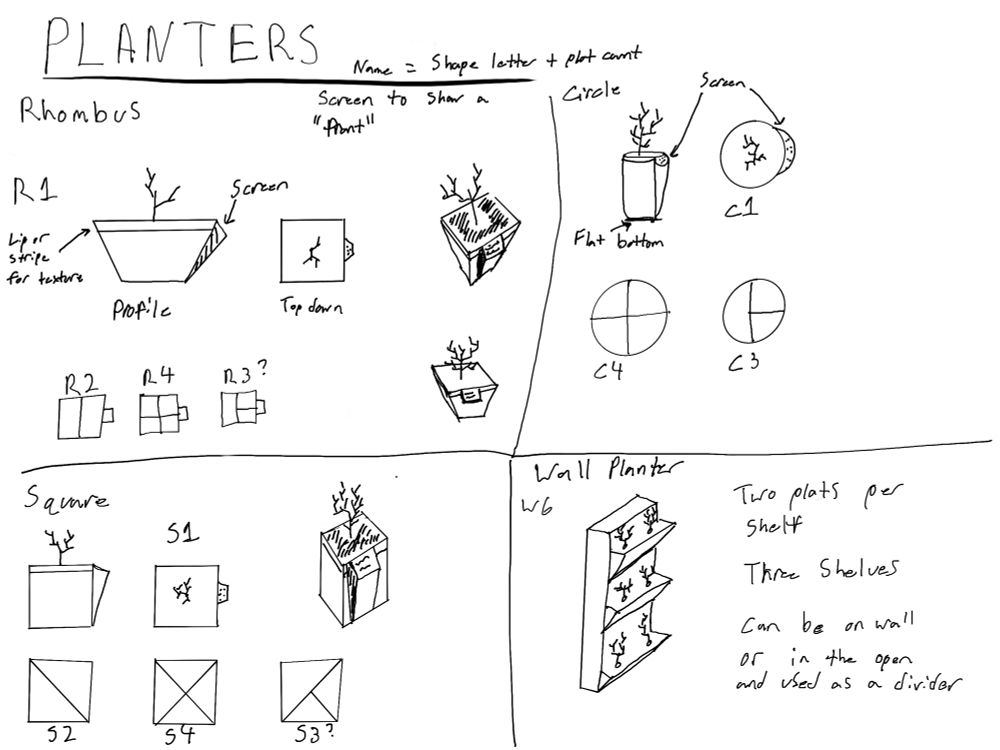 PLANTERS
Name = Shape letter + plot count
Rhombus
Screen to show a
"front"
R1
Screen
Lip or
stripe
for texture
Profile
Top down
R2
R4
R3?
Circle
Screen
Flat bottom
C1
C4
C3
Square
S1
S2
S4
S3?
Wall Planter
W6
Two plats per
shelf
Three Shelves
Can be on wall
or in the open
and used as a divider